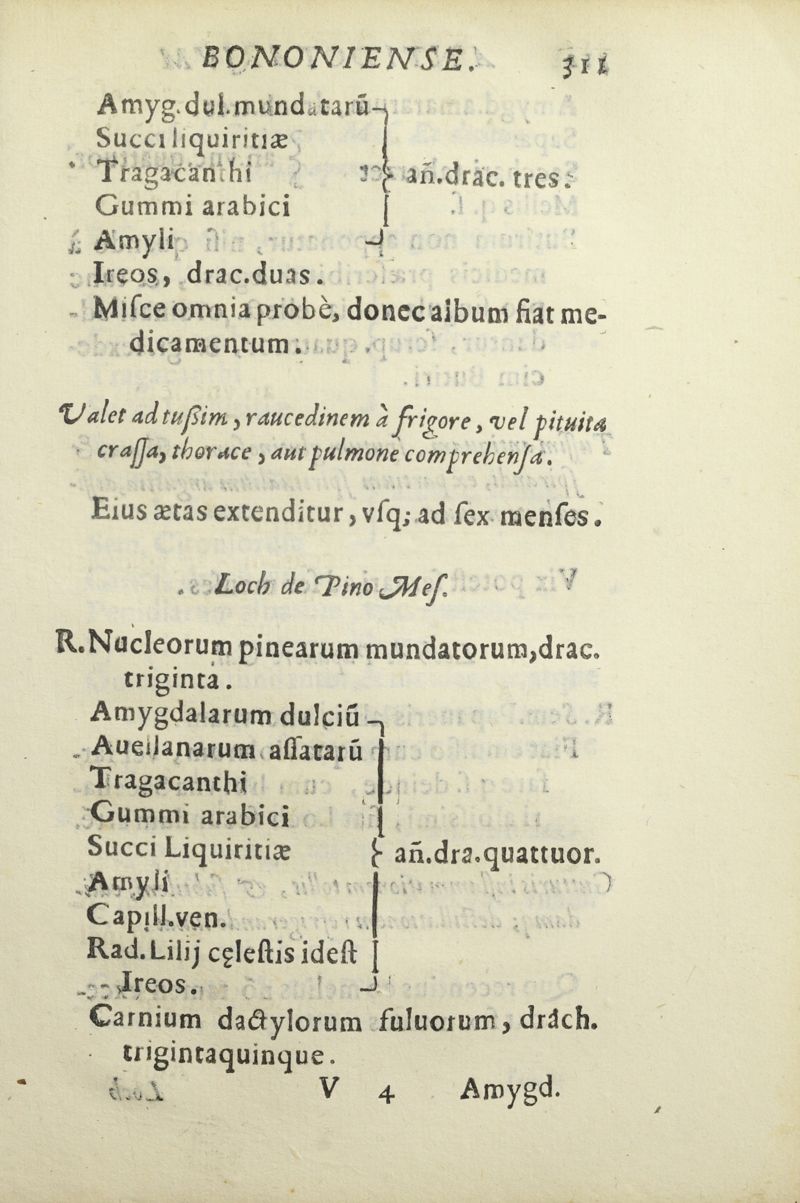 BONONIENSE. 311
Amyg.dul.mundatarū
Succi liquiritiæ
Tragacanthi añ.drac. tres.
Gummi arabici
Amyli
Ireos, drac.duas.
Miſce omnia probè, donec album fiat me-
dicamentum.
Valet ad tuſſim, raucedinem à frigore, vel pituita
craſſa, thorace, aut pulmone comprehenſa.
Eius ætas extenditur, vſq; ad ſex menſes.
Loch de Pino Meſ.
R. Nucleorum pinearum mundatorum, drac.
triginta.
Amygdalarum dulciū
Auellanarum aſſatarū
Tragacanthi
Gummi arabici
Succi Liquiritiæ añ.dra.quattuor.
Amyli
Capill.ven.
Rad. Lilij cęleſtis ideſt
Ireos.
Carnium dactylorum fuluorum, drách.
trigintaquinque.
V 4 Amygd.